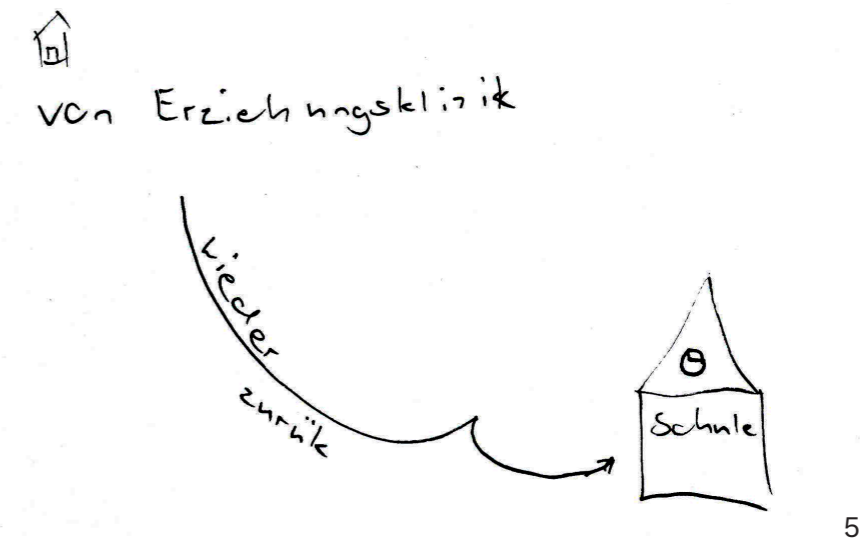 von Erziehungsklinik
wieder
zurük
Schule
5